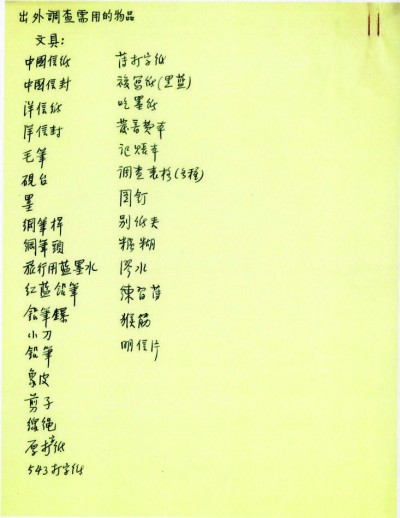 出外調查需用的物品
文具:
中國信紙
中國信封
洋信紙
洋信封
毛筆
硯台
墨
鋼筆桿
鋼筆頭
旅行用藍墨水
紅藍鉛筆
鉛筆鏍
小刀
鉛筆
象皮
剪子
線繩
厚打字紙
543打字紙
薄打字紙
複寫紙(黑藍)
吃墨紙
記賬本
調查表格(各種)
圖釘
別紙夾
糨糊
膠水
練習簿
猴筋
明信片